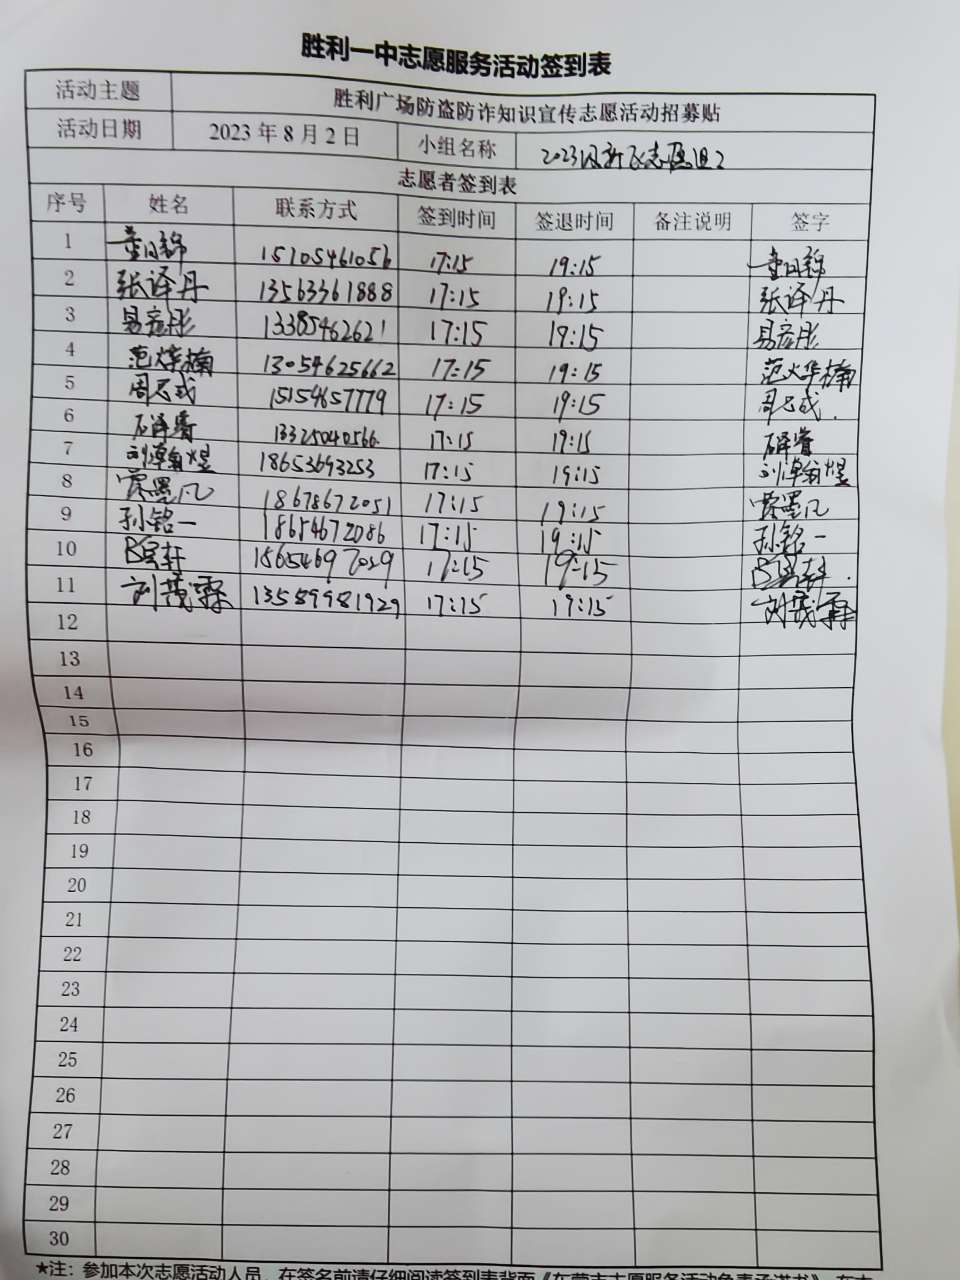 胜利一中志愿服务活动签到表
活动主题 胜利广场防盗防诈知识宣传志愿活动招募贴
活动日期 2023年8月2日 小组名称 2023 志愿
志愿者签到表
序号 姓名 联系方式 签到时间 签退时间 备注说明 签字
1 15105461056 17:15 19:15
2 张译丹 13563361888 17:15 19:15 张译丹
3 易彦彤 13385462621 17:15 19:15 易彦彤
4 范烨楠 13054625662 17:15 19:15 范烨楠
5 15154657779 17:15 19:15
6 石泽睿 13325040566 17:15 19:15 石泽睿
7 刘瀚煜 18653693253 17:15 19:15 刘瀚煜
8 18678672051 17:15 19:15
9 孙铭一 18654672086 17:15 19:15 孙铭一
10 15654697029 17:15 19:15
11 刘茂霖 13589981929 17:15 19:15 刘茂霖
12
13
14
15
16
17
18
19
20
21
22
23
24
25
26
27
28
29
30
★注：参加本次志愿活动人员，在签名前请仔细阅读签到表背面《东营市志愿服务活动免责承诺书》，在本